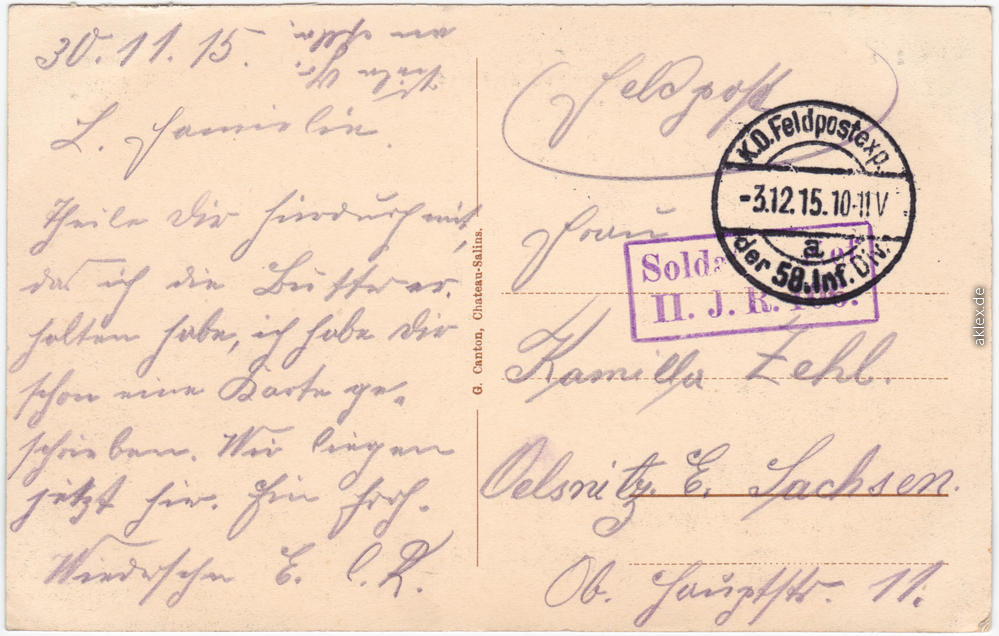 30. 11. 15.
L. Familie
Theile Dir hierdurch mit,
das ich die Butter er-
halten habe, ich habe Dir
schon eine Karte ge-
schrieben. Wir liegen
jetzt hir. Ein froh.
Wiedersehn E. l. K.
G. Canton, Chateau-Salins.
Feldpost
K.D. Feldpostexp.
-3.12.15. 10-11 V
a
der 58. Inf. Div.
Frau
II. J. R.
Kamilla Zehl.
Oelsnitz. E. Sachsen.
Ob. Hauptstr. 11.
aklex.de